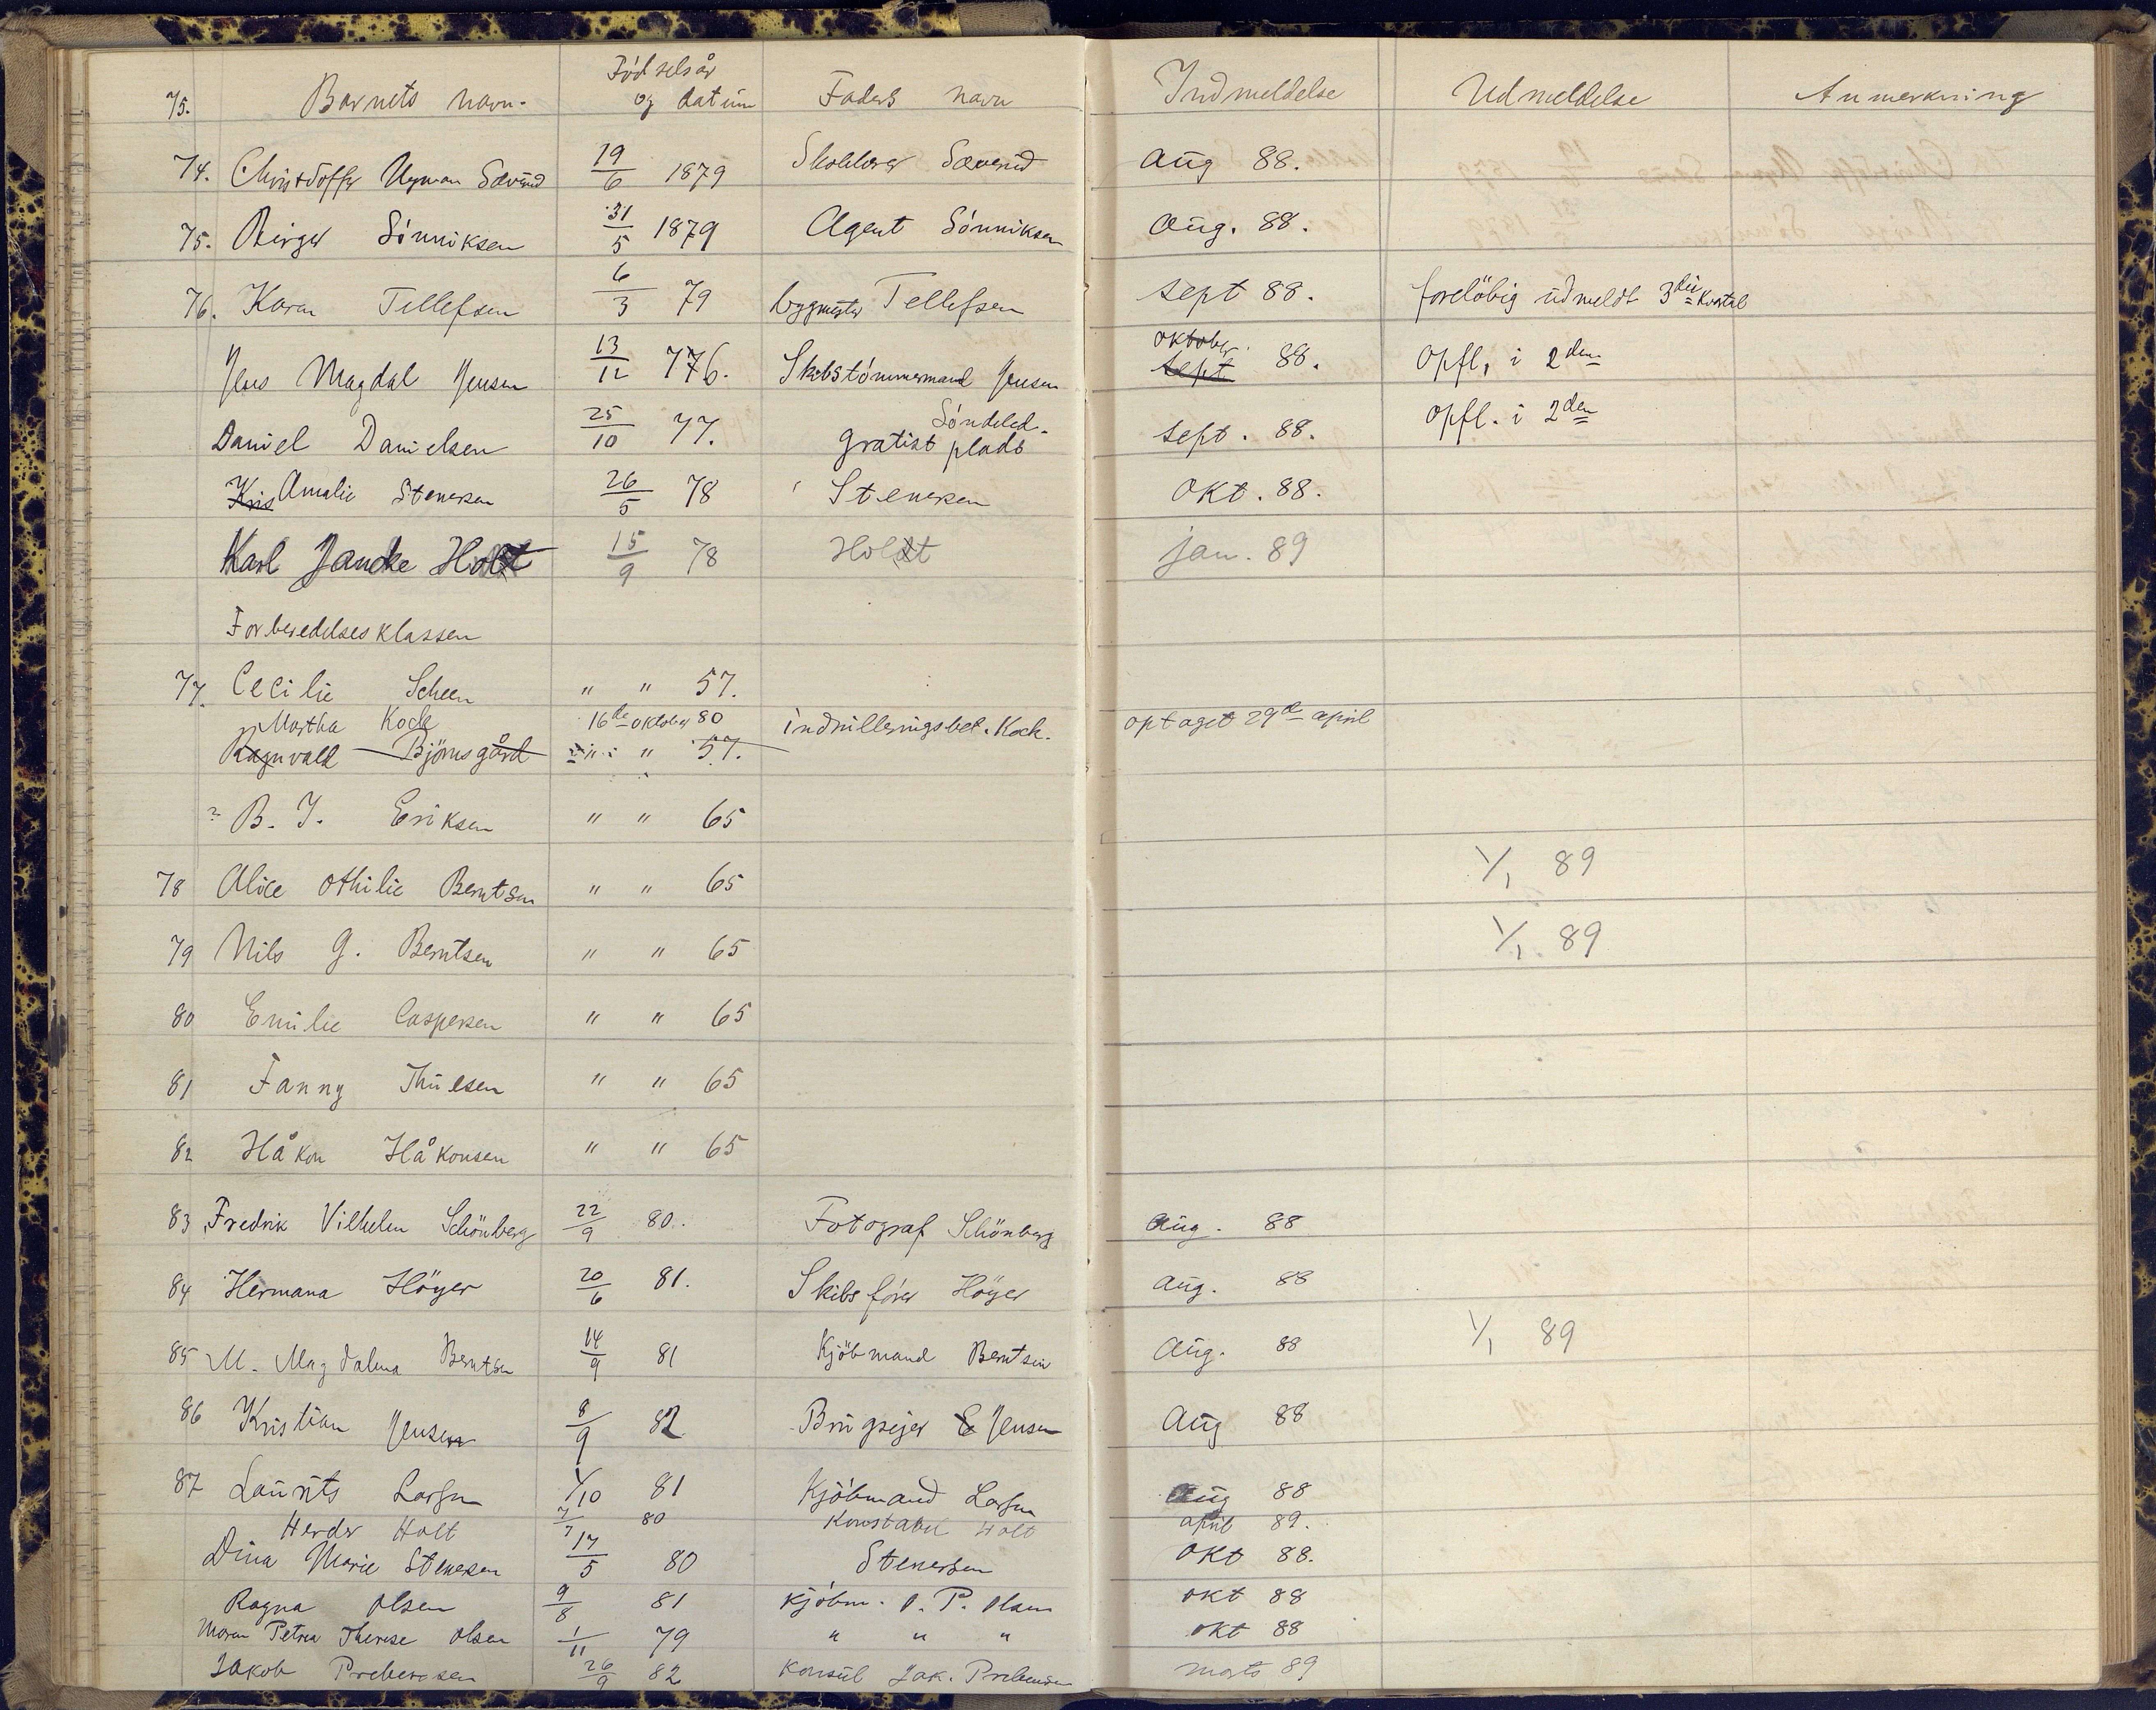 75. Barnets navn. Födselsår og datum Faders navn Indmeldelse Udmeldelse Anmerkning
74. Christoffer Ugman Sævrud 19/6 1879 Sævrud aug 88.
75. Birger Sönniksen 31/5 1879 Agent Sönniksen aug. 88.
76. Karen Tellefsen 6/3 79 bygmester Tellefsen sept 88. forelöbig udmeldt 3die kvartal
Jens Magdal Jensen 13/12 776. Skibstömmermand Jensen oktober sept 88. opfl, i 2den
Daniel Danielsen 25/10 77. Söndeled. gratist plads sept. 88. opfl. i 2den
Kris Amalie Stenersen 26/5 78 Stenersen okt. 88.
Karl Jancke Holt 15/9 78 Holt jan. 89
Forberedelsesklassen
77. Cecilie Scheen " " 57.
Martha Kock 16de oktober 80 indrulleringsbet. Kock. optaget 29de april
Ragnvald Björnsgård " " 57.
? B. J. Eriksen " " 65
78 Alice Othilie Berntsen " " 65 1/1 89
79 Nils G. Berntsen " " 65 1/1 89
80 Emilie Caspersen " " 65
81 Fanny Thulesen " " 65
82 Håkon Håkonsen " " 65
83 Fredrik Vilhelm Schönberg 22/9 80. Fotograf Schönberg aug. 88
84 Hermana Höyer 20/6 81. Skibsförer Höyer aug. 88
85 M. Magdalena Berntsen 14/9 81 Kjöbmand Berntsen aug. 88 1/1 89
86 Kristian Jensen 8/9 82 Brugsejer E Jensen aug 88
87 Laurits Larsen 1/10 81 Kjöbmand Larsen aug 88
Herder Holt 7/7 80 Konstabel Holt april 89.
Dina Marie Stenersen 17/5 80 Stenersen okt 88.
Ragna Olsen 9/8 81 kjöbm. O. P. Olsen okt 88
Maren Petrea Therese Olsen 1/11 79 " " " okt 88
Jakob Prebensen 26/9 82 konsul Jak. Prebensen marts 89